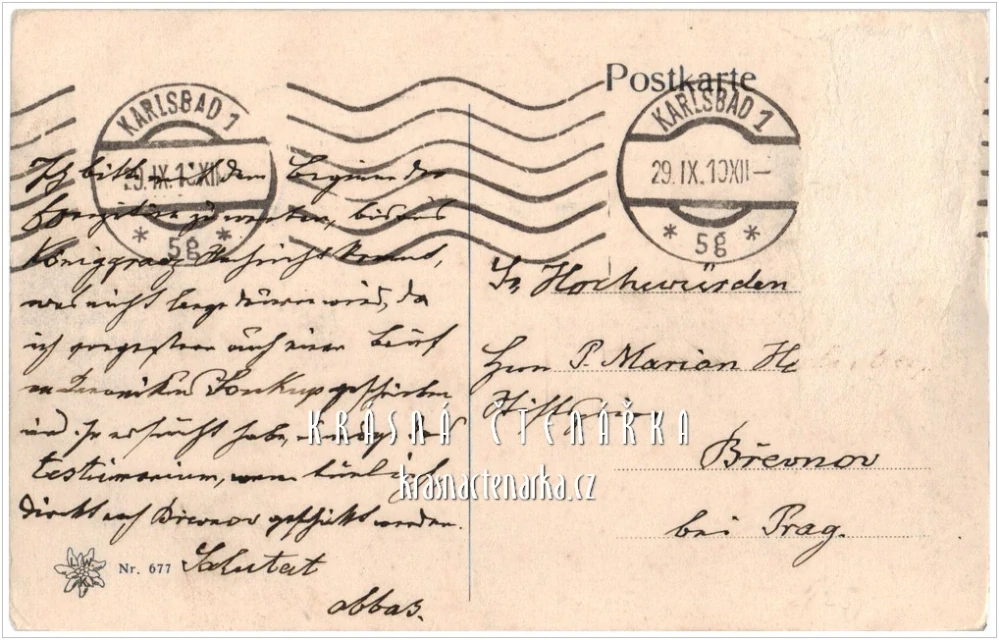 Postkarte
KARLSBAD 1
29. IX. 10 XII
* 5g *
KARLSBAD 1
29. IX. 10 XII –
* 5g *
Ich bitte mit dem Beginn der
Exerzitien zu warten, bis aus
Königgraez Nachricht kommt,
was nicht lange dauern wird, da
ich vorgestern auch einen Brief
an Soukup geschrieben
und ersucht habe, das
testimonium,
direkt nach Břevnov geschickt werden.
Salutat
abbas.
Sr Hochwürden
Herrn P. Marian
Břevnov
bei Prag.
KRÁSNÁ ČTENÁŘKA
krasnactenarka.cz
Nr. 677